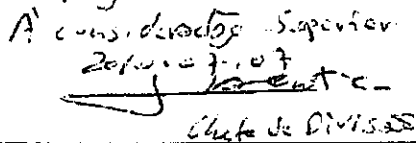 À consideração Superior
2010.07.07
Chefe de Divisão